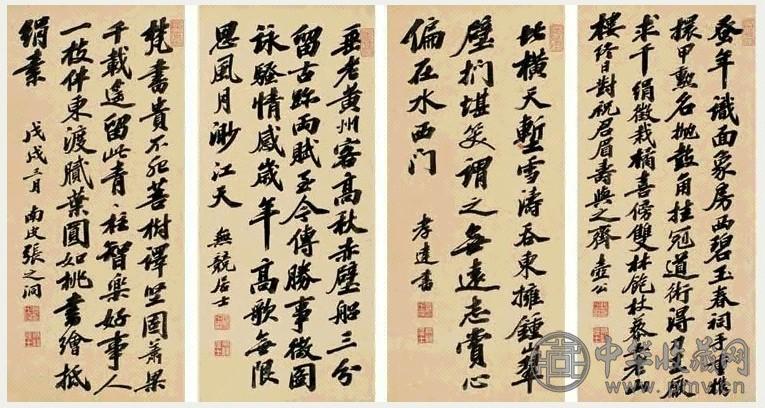 年識面象房西碧玉春祠手重携
擐甲勲名抛鼓角挂冠道術得刀
求干絹徵栽橘喜傍雙林飽杖藜老
樓終日對祝君眉壽與之齊 壺公
此橫天塹雪濤吞東擁鍾山翠
壁捫堪笑謂之無遠志賞心
偏在水西门
孝達書
垂老黄州客高秋赤壁船三分
留古跡兩賦至今傳勝事徵圖
詠騷情感歲年高歌無限
思風月渺江天 無競居士
梵書貴不死菩樹譯堅固蕭梁
千載遠留此青、柱智藥好事人
一枝件東渡膩葉圓如桃書繪抵
絹素 戊戌三月 南皮張之洞
中华收藏网